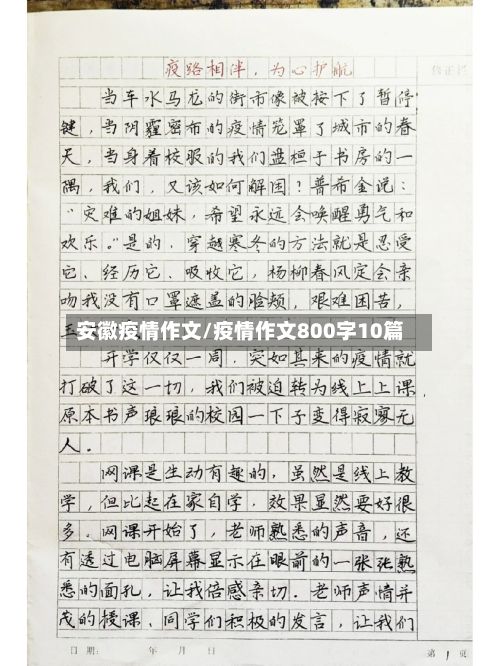 疫路相伴,为心护航
修正栏
当车水马龙的街市像被按下了暂停
键,当阴霾密布的疫情笼罩了城市的春
天,当身着校服的我们盘桓于书房的一
隅,我们,又该如何解困!普希金说:
“灾难的姐妹,希望永远会唤醒勇气和
欢乐。”是的,穿越寒冬的方法就是忍受
它、经历它、吸收它,杨柳春风定会亲
吻我没有口罩遮盖的脸颊,艰难困苦,
玉
安徽疫情作文/疫情作文800字10篇
开学仅仅一周,突如其来的疫情就
打破了这一切,我们被迫转为线上上课,
原本书声琅琅的校园一下子变得寂寥无
人。
网课是生动有趣的,虽然是线上教
学,但比起在家自学,效果显然要好很
多。网课开始了,老师熟悉的声音,还
有透过电脑屏幕显示在眼前的一张张熟
悉的面孔,让我倍感亲切。老师声情并
茂的授课、同学们积极的发言,让我们
日期: 年 月 日 第 1 页